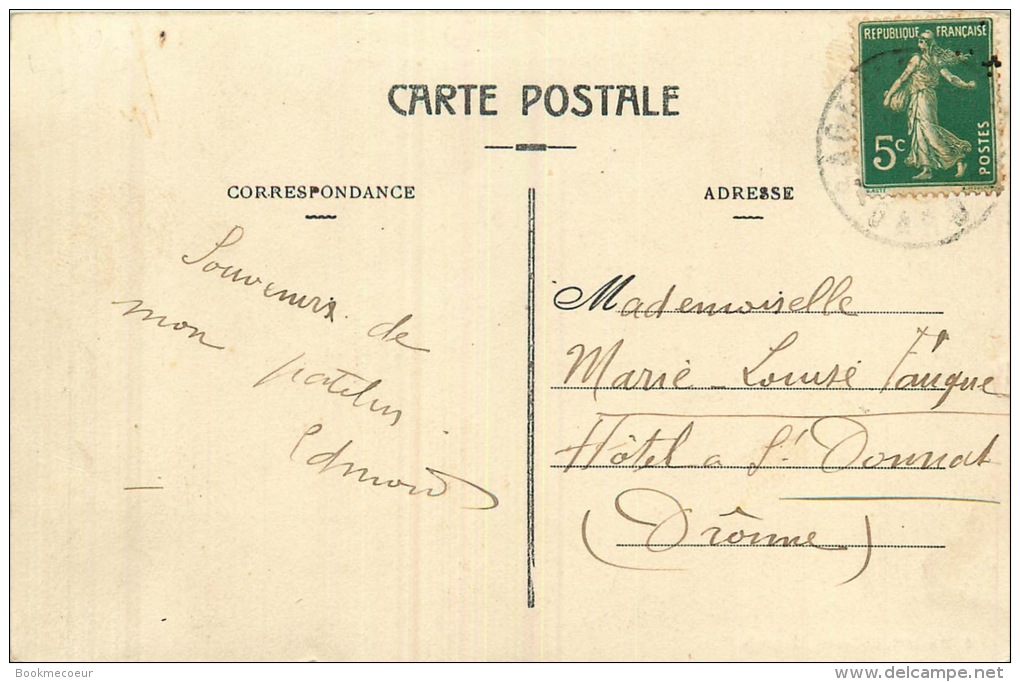 CARTE POSTALE
CORRESPONDANCE
ADRESSE
RÉPUBLIQUE FRANÇAISE
5c
POSTES
Souvenirs de
mon patelin
Edmond
Mademoiselle
Marie-Louise Fauque
Hôtel a St Donnat
(Drôme)
Bookmecoeur
delcampe.net